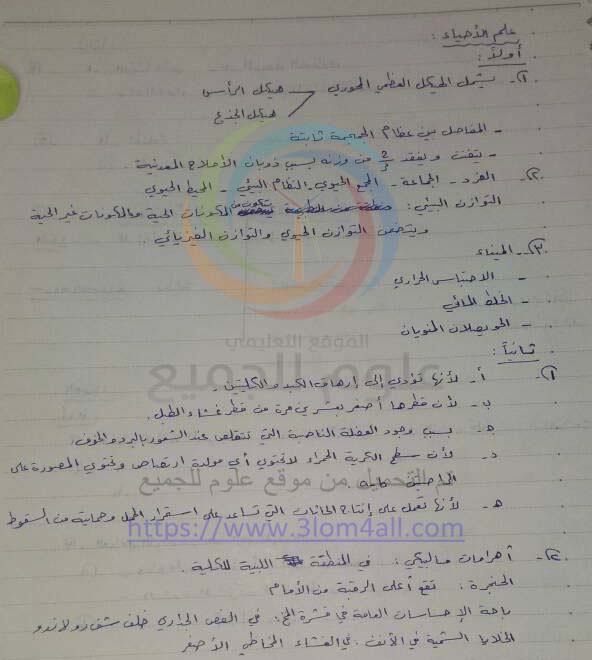 علم الأحياء :
أولاً :
١- يشمل الهيكل العظمي المحوري هيكل الرأس
هيكل الجذع
- المفاصل بين عظام الجمجمة ثابتة
- يتفتت ويفقد 2/3 من وزنه بسبب ذوبان الأملاح المعدنية
٢- الفرد - الجماعة - المجمع الحيوي - النظام البيئي - المحيط الحيوي
التوازن البيئي : يتكون من المكونات الحية والمكونات غير الحية
ويتضمن التوازن الحيوي والتوازن الفيزيائي .
٣- الميناء
- الاحتباس الحراري
- الخلط المائي
- الحويصلان المنويان
الموقع التعليمي
علوم للجميع
ثانياً :
١- أ- لأنها تؤدي إلى إرهاق الكبد والكليتين .
ب- لأن قطرها أصغر بعشرين مرة من قطر غشاء الطبل .
جـ- بسبب وجود العضلة الناصبة التي تتقلص عند الشعور بالبرد والخوف .
د- لأن سطح الكرية الحمراء لا تحتوي أي مولدة ارتصاص وتحتوي المصورة على
تم التحميل من موقع علوم للجميع
هـ- لأنها تعمل على إنتاج الحاثات التي تساعد على استقرار الحمل وحماية من السقوط
https://www.3lom4all.com
٢- أهرامات مالبيكي : في المنطقة اللبية للكلية .
الحنجرة : تقع أعلى الرقبة من الأمام
باحة الإحساسات العامة في قشرة المخ : في الفص الجداري خلف شق رولاندو
الخلايا الشمية في الأنف : في الغشاء المخاطي الأصفر